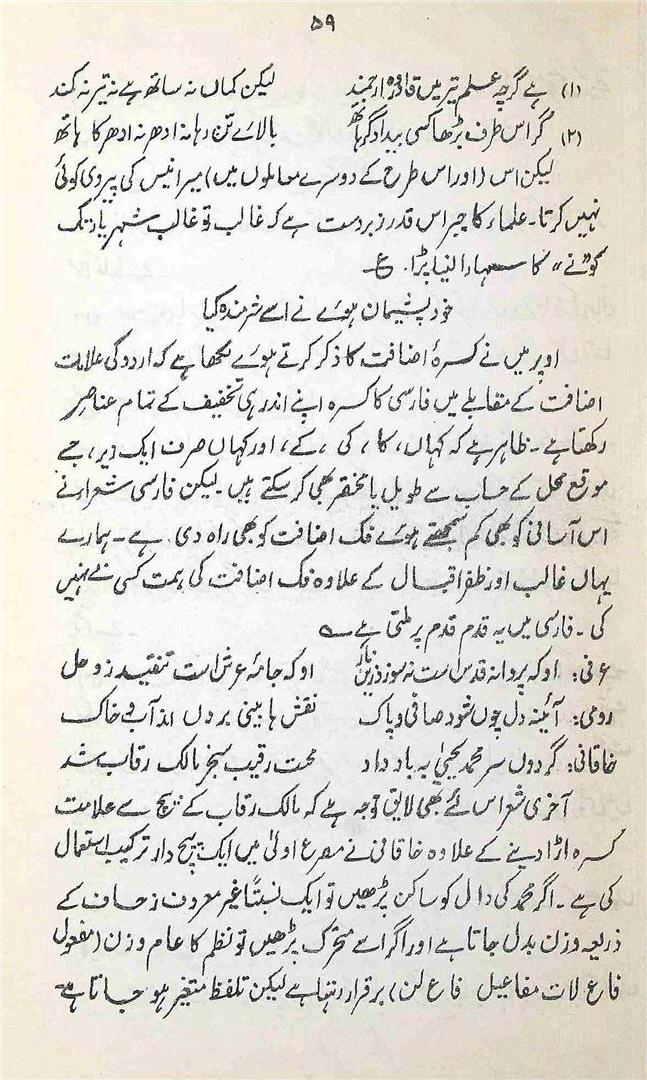 ۵۹
(۱) ہے گرچہ علم تیر میں قادر وہ ارجمند لیکن کماں نہ ساتھ ہے نہ تیر نہ کمند
(۲) گر اس طرف بڑھا کسی بیدادگر کا ہاتھ بالائے تن رہا نہ ادھر نہ ادھر کا ہاتھ
لیکن اس (اور اس طرح کے دوسرے معاملوں میں) میر انیس کی پیروی کوئی
نہیں کرتا۔ علماء کا جبر اس قدر زبردست ہے کہ غالب تو غالب شہریار تک
کو "نے" کا سہارا لینا پڑا۔ ع
خود پشیمان ہوئے نے اسے شرمندہ کیا
اوپر میں نے کسرۂ اضافت کا ذکر کرتے ہوئے لکھا ہے کہ اردو کی علامت
اضافت کے مقابلے میں فارسی کا کسرہ اپنے اندر ہی تخفیف کے تمام عناصر
رکھتا ہے۔ ظاہر ہے کہ کہاں، کا، کی، کے، اور کہاں صرف ایک زیر، جسے
موقع محل کے حساب سے طویل یا مختصر بھی کر سکتے ہیں۔ لیکن فارسی شعراء نے
اس آسانی کو بھی کم سمجھتے ہوئے فک اضافت کو بھی راہ دی ہے۔ ہمارے
یہاں غالب اور ظفر اقبال کے علاوہ فک اضافت کی ہمت کسی نے نہیں
کی۔ فارسی میں یہ قدم قدم پر ملتی ہے ؎
عرفی: او کہ پروانہ قدس است نہ سوزد زیں نار او کہ جامۂ عرش است تنقید زوحل
رومی: آئینہ دل چوں شود صافی و پاک نقش ہا بینی بروں از آب و خاک
خاقانی: گردوں سر محمد یحییٰ بہ باد داد محنت رقیب سنجر مالک رقاب شد
آخری شعر اس لئے بھی لایق توجہ ہے کہ مالک رقاب کے بیچ سے علامت
کسرہ اڑا دینے کے علاوہ خاقانی نے مصرع اولیٰ میں ایک پیچ دار ترکیب استعمال
کی ہے۔ اگر محمد کی دال کو ساکن پڑھیں تو ایک نسبتاً غیر معروف زحاف کے
ذریعہ وزن بدل جاتا ہے اور اگر اسے متحرک پڑھیں تو نظم کا عام وزن (مفعول
فاع لات مفاعیل فاع لن) برقرار رہتا ہے لیکن تلفظ متغیر ہو جاتا ہے۔